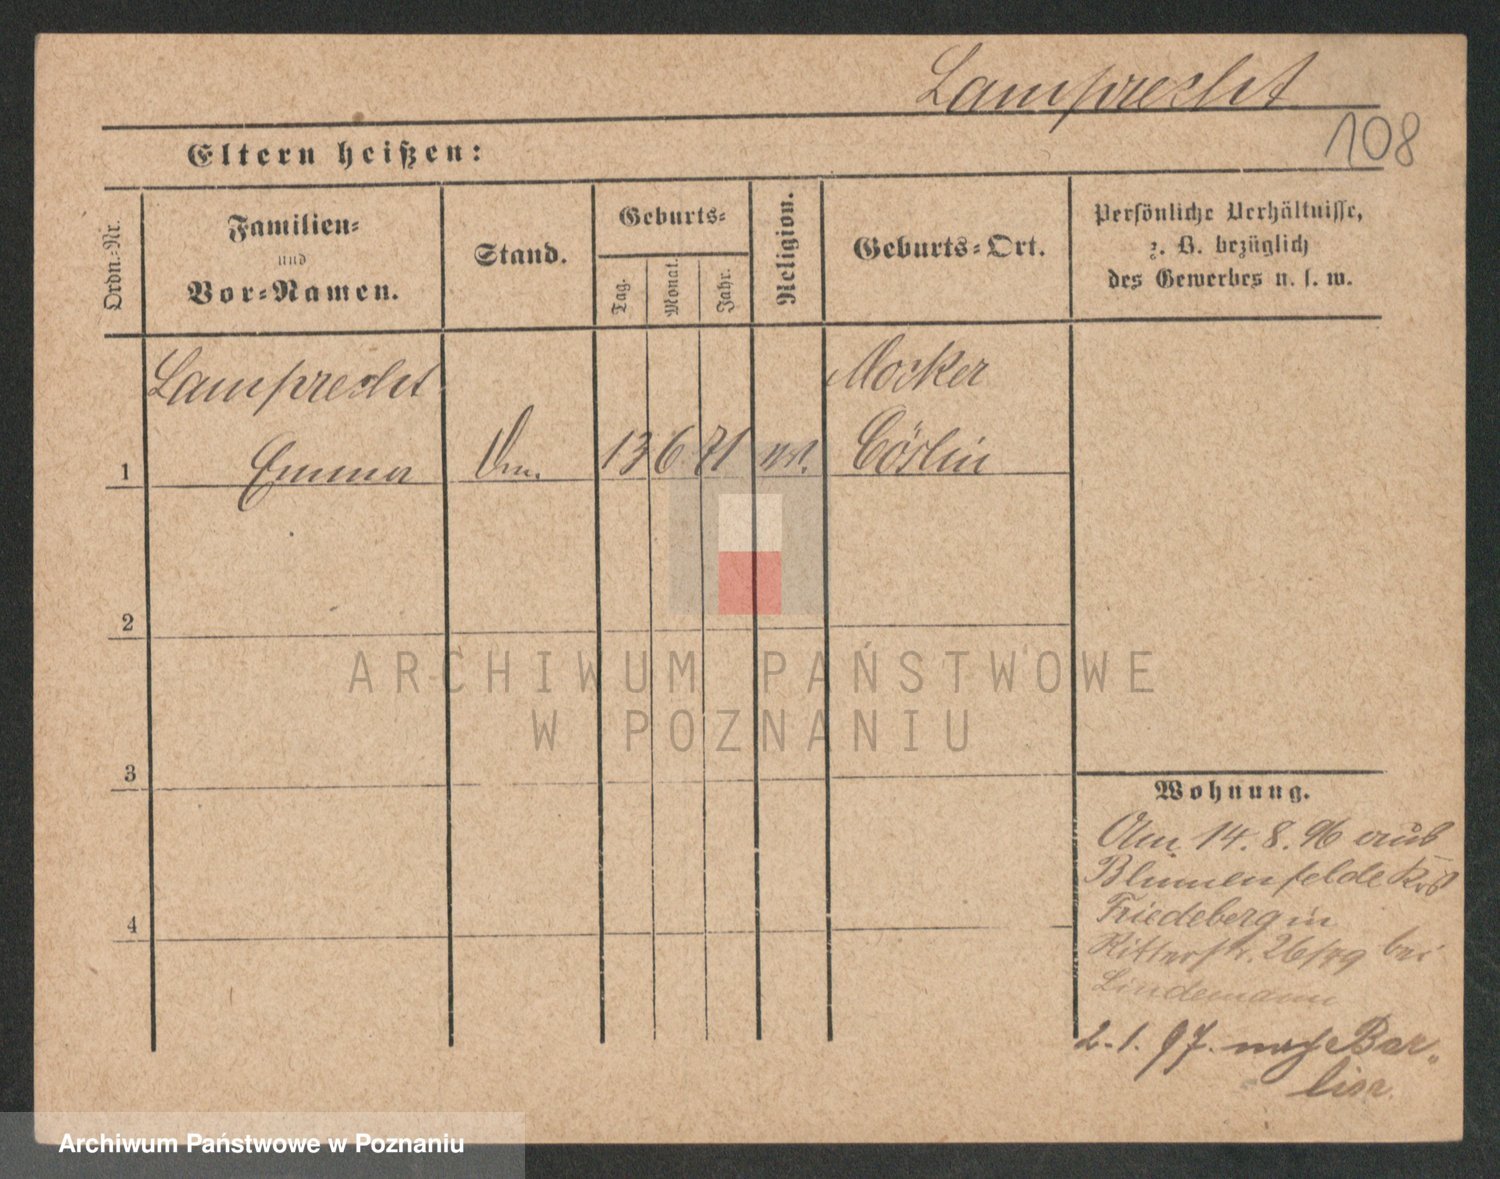 Lamprecht
108
Eltern heißen:
Ordn.-Nr.
Familien-
und
Vor-Namen.
Stand.
Geburts-
Tag.
Monat.
Jahr.
Religion.
Geburts-Ort.
Persönliche Verhältnisse,
z. B. bezüglich
des Gewerbes u. s. w.
Lamprecht
Mocker
1 Emma 13 6 71 Cörlin
2
3
4
ARCHIWUM PAŃSTWOWE
W POZNANIU
Wohnung.
Am 14. 8. 96 aus
Blumenfelde Krs
Friedeberg in
Ritterstr. bei
Lindemann
2. 1. 97. nach Ber-
lin
Archiwum Państwowe w Poznaniu